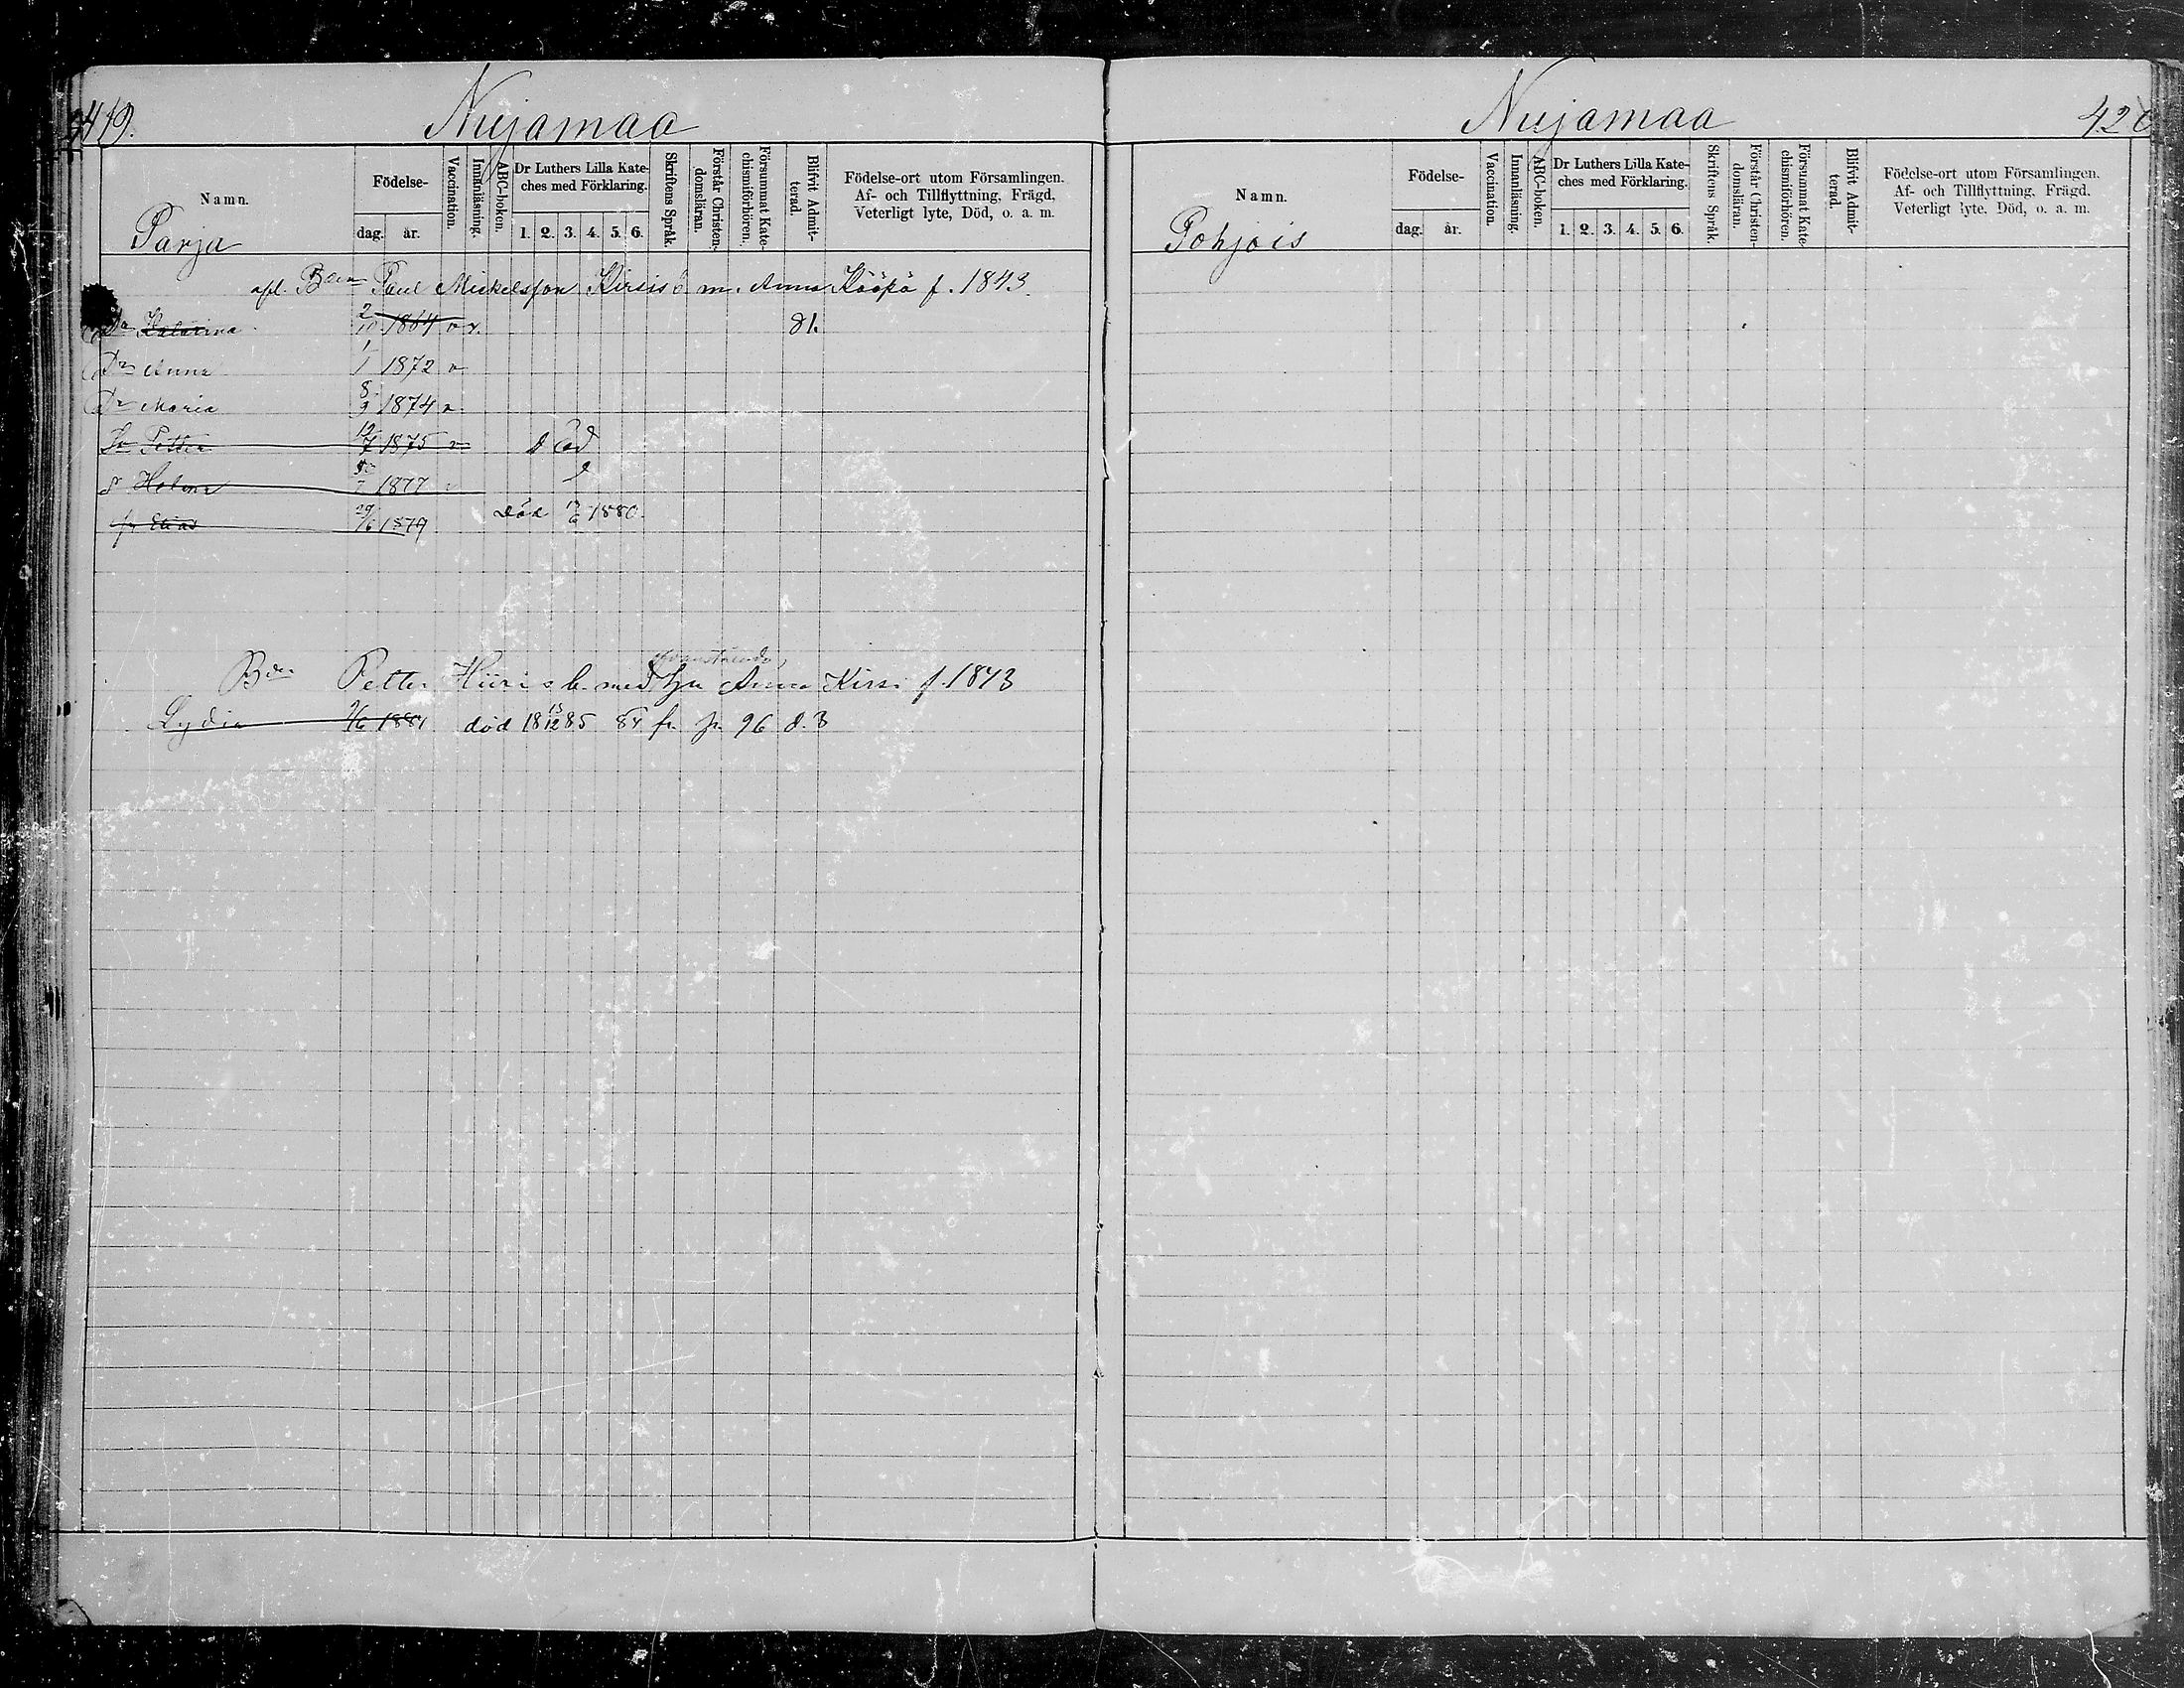 419.
Nuijamaa
Namn.
Födelse-
dag.
år.
Vaccination.
Innanläsning.
ABC-boken.
Dr Luthers Lilla Kate-
ches med Förklaring.
1. 2. 3. 4. 5. 6.
Skriftens Språk.
Förstår Christen-
domsläran.
Försummat Kate-
chismiförhören.
Blifvit Admit-
terad.
Födelse-ort utom Församlingen.
Af- och Tillflyttning, Frägd,
Veterligt lyte, Död, o. a. m.
Parja
afl. Bden Paul Mickelsson Kirsis b. m. Anna Kööpä f. 1843.
Dr Katarina 2/10 1864 v. 81.
Dr Anna 1/1 1872 v
Dr Maria 8/9 1874 v.
Sn Petter 12/7 1875 v död
Dr Helena 1877
Sn Elias 29/6 1879 död 1880.
Bden Petter Hiiris b. med hu Anna Kirsi f. 1843
Lydia 9/6 1881 död 18 15/12 85 84 fr. p. 96 d. B
Nuijamaa
420
Namn.
Födelse-
dag.
år.
Vaccination.
Innanläsning.
ABC-boken.
Dr Luthers Lilla Kate-
ches med Förklaring.
1. 2. 3. 4. 5. 6.
Skriftens Språk.
Förstår Christen-
domsläran.
Försummat Kate-
chismiförhören.
Blifvit Admit-
terad.
Födelse-ort utom Församlingen.
Af- och Tillflyttning, Frägd.
Veterligt lyte. Död, o. a. m.
Pohjois